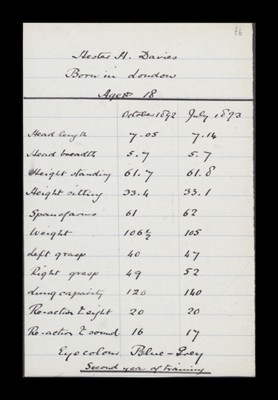 16
Hester H. Davies
Born in London
Aged 18
October 1892 July 1893
Head length 7.05 7.14
Head breadth 5.7 5.7
Height standing 61.7 61.8
Height sitting 33.4 33.1
Span of arms 61 62
Weight 106½ 105
Left grasp 40 47
Right grasp 49 52
Lung capacity 120 140
Re-action T. sight 20 20
Re-action T. sound 16 17
Eye colour Blue-Grey
Second year of training